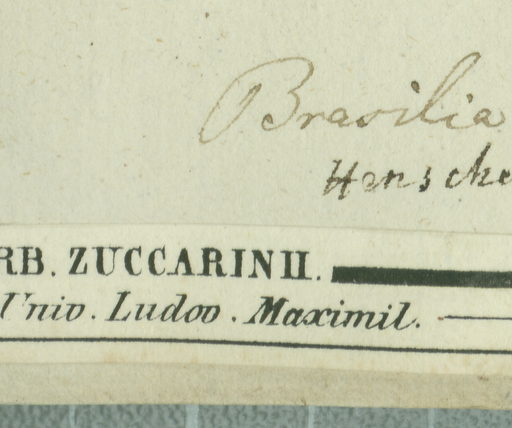 Brasilia
Hensche
RB. ZUCCARINII.
Univ. Ludov. Maximil.